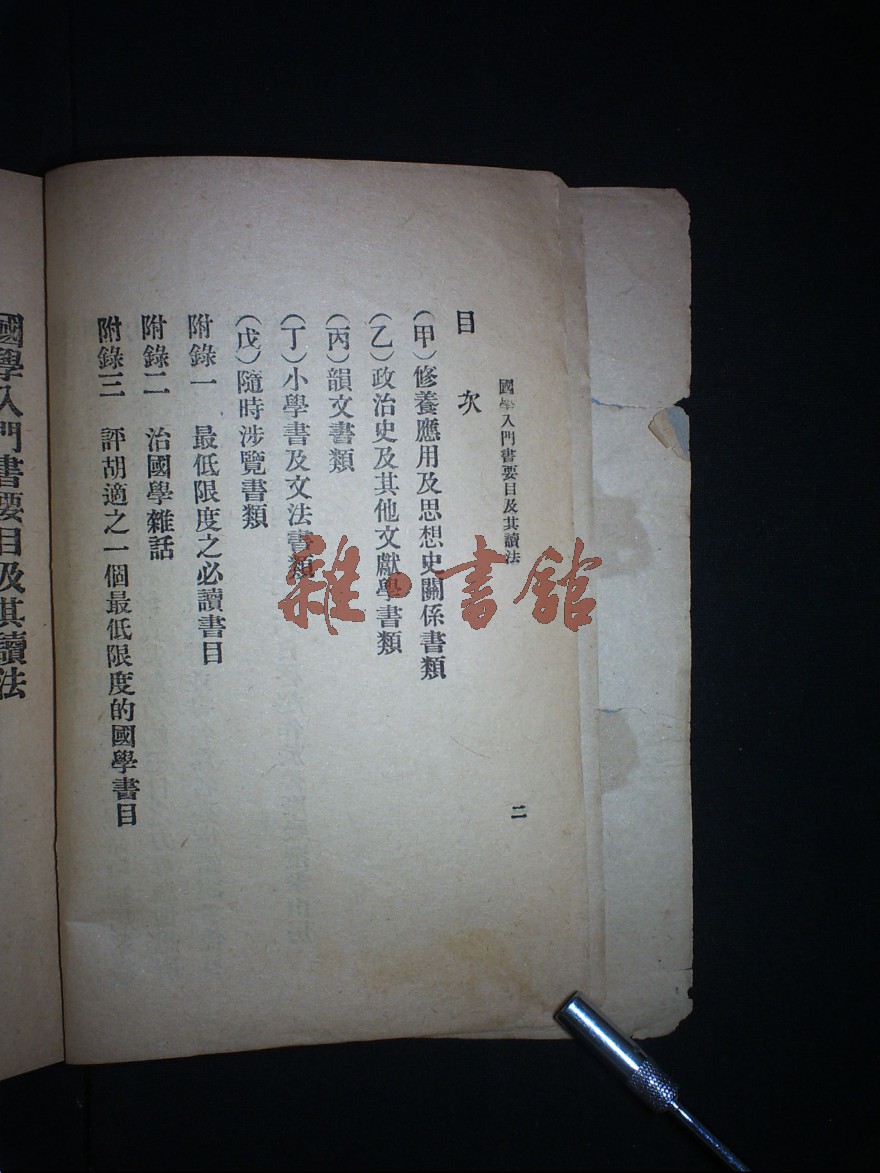 國學入門書要目及其讀法
二
目次
(甲)修養應用及思想史關係書類
(乙)政治史及其他文獻學書類
(丙)韻文書類
(丁)小學書及文法書類
(戊)隨時涉覽書類
附錄一 最低限度之必讀書目
附錄二 治國學雜話
附錄三 評胡適之一個最低限度的國學書目
國學入門書要目及其讀法
雜·書館